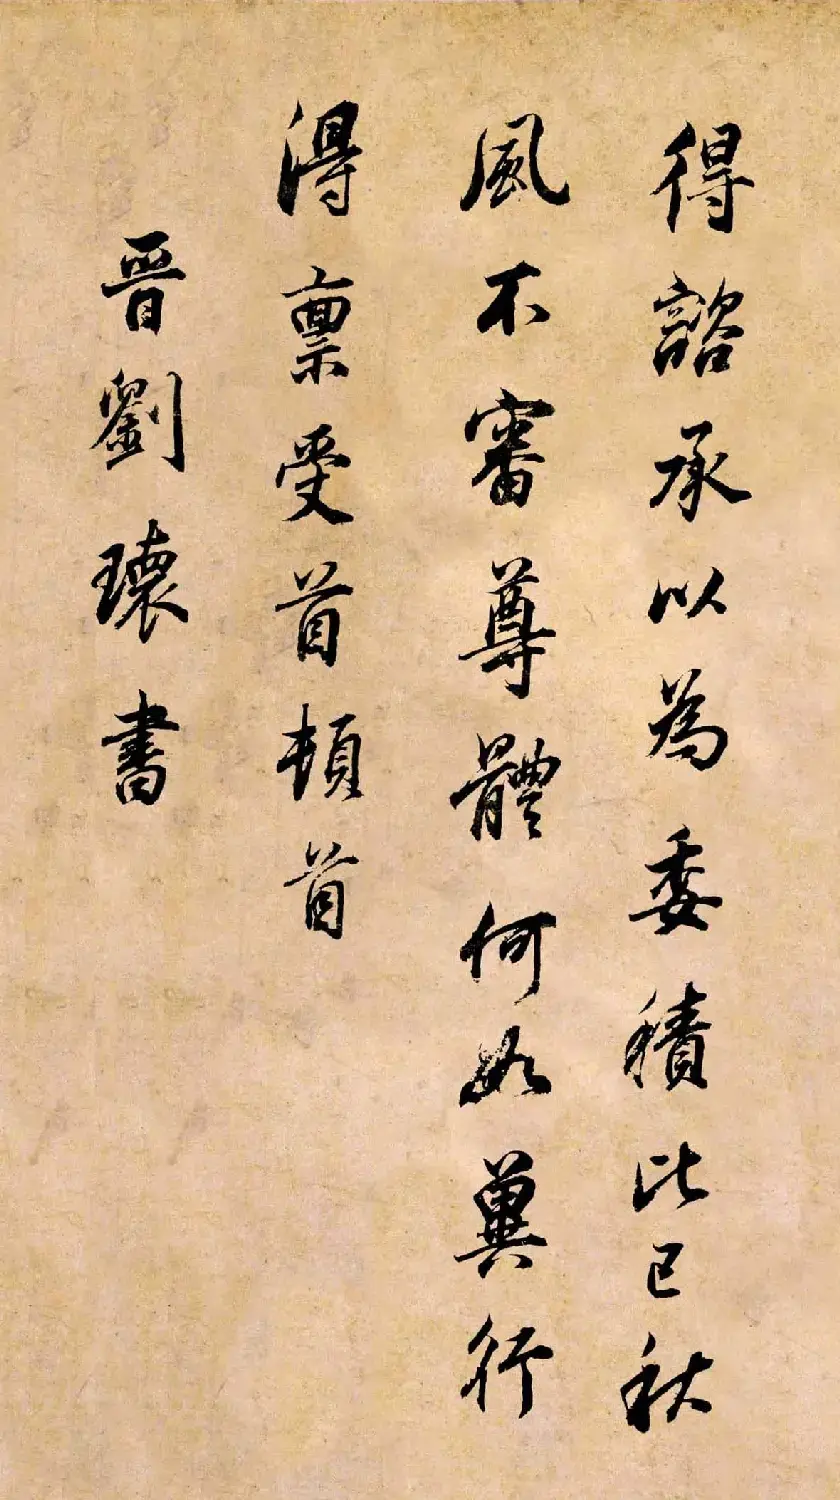 得諮承以為委積比已秋
風不審尊體何如冀行
得稟受首頓首
晉劉瓌書